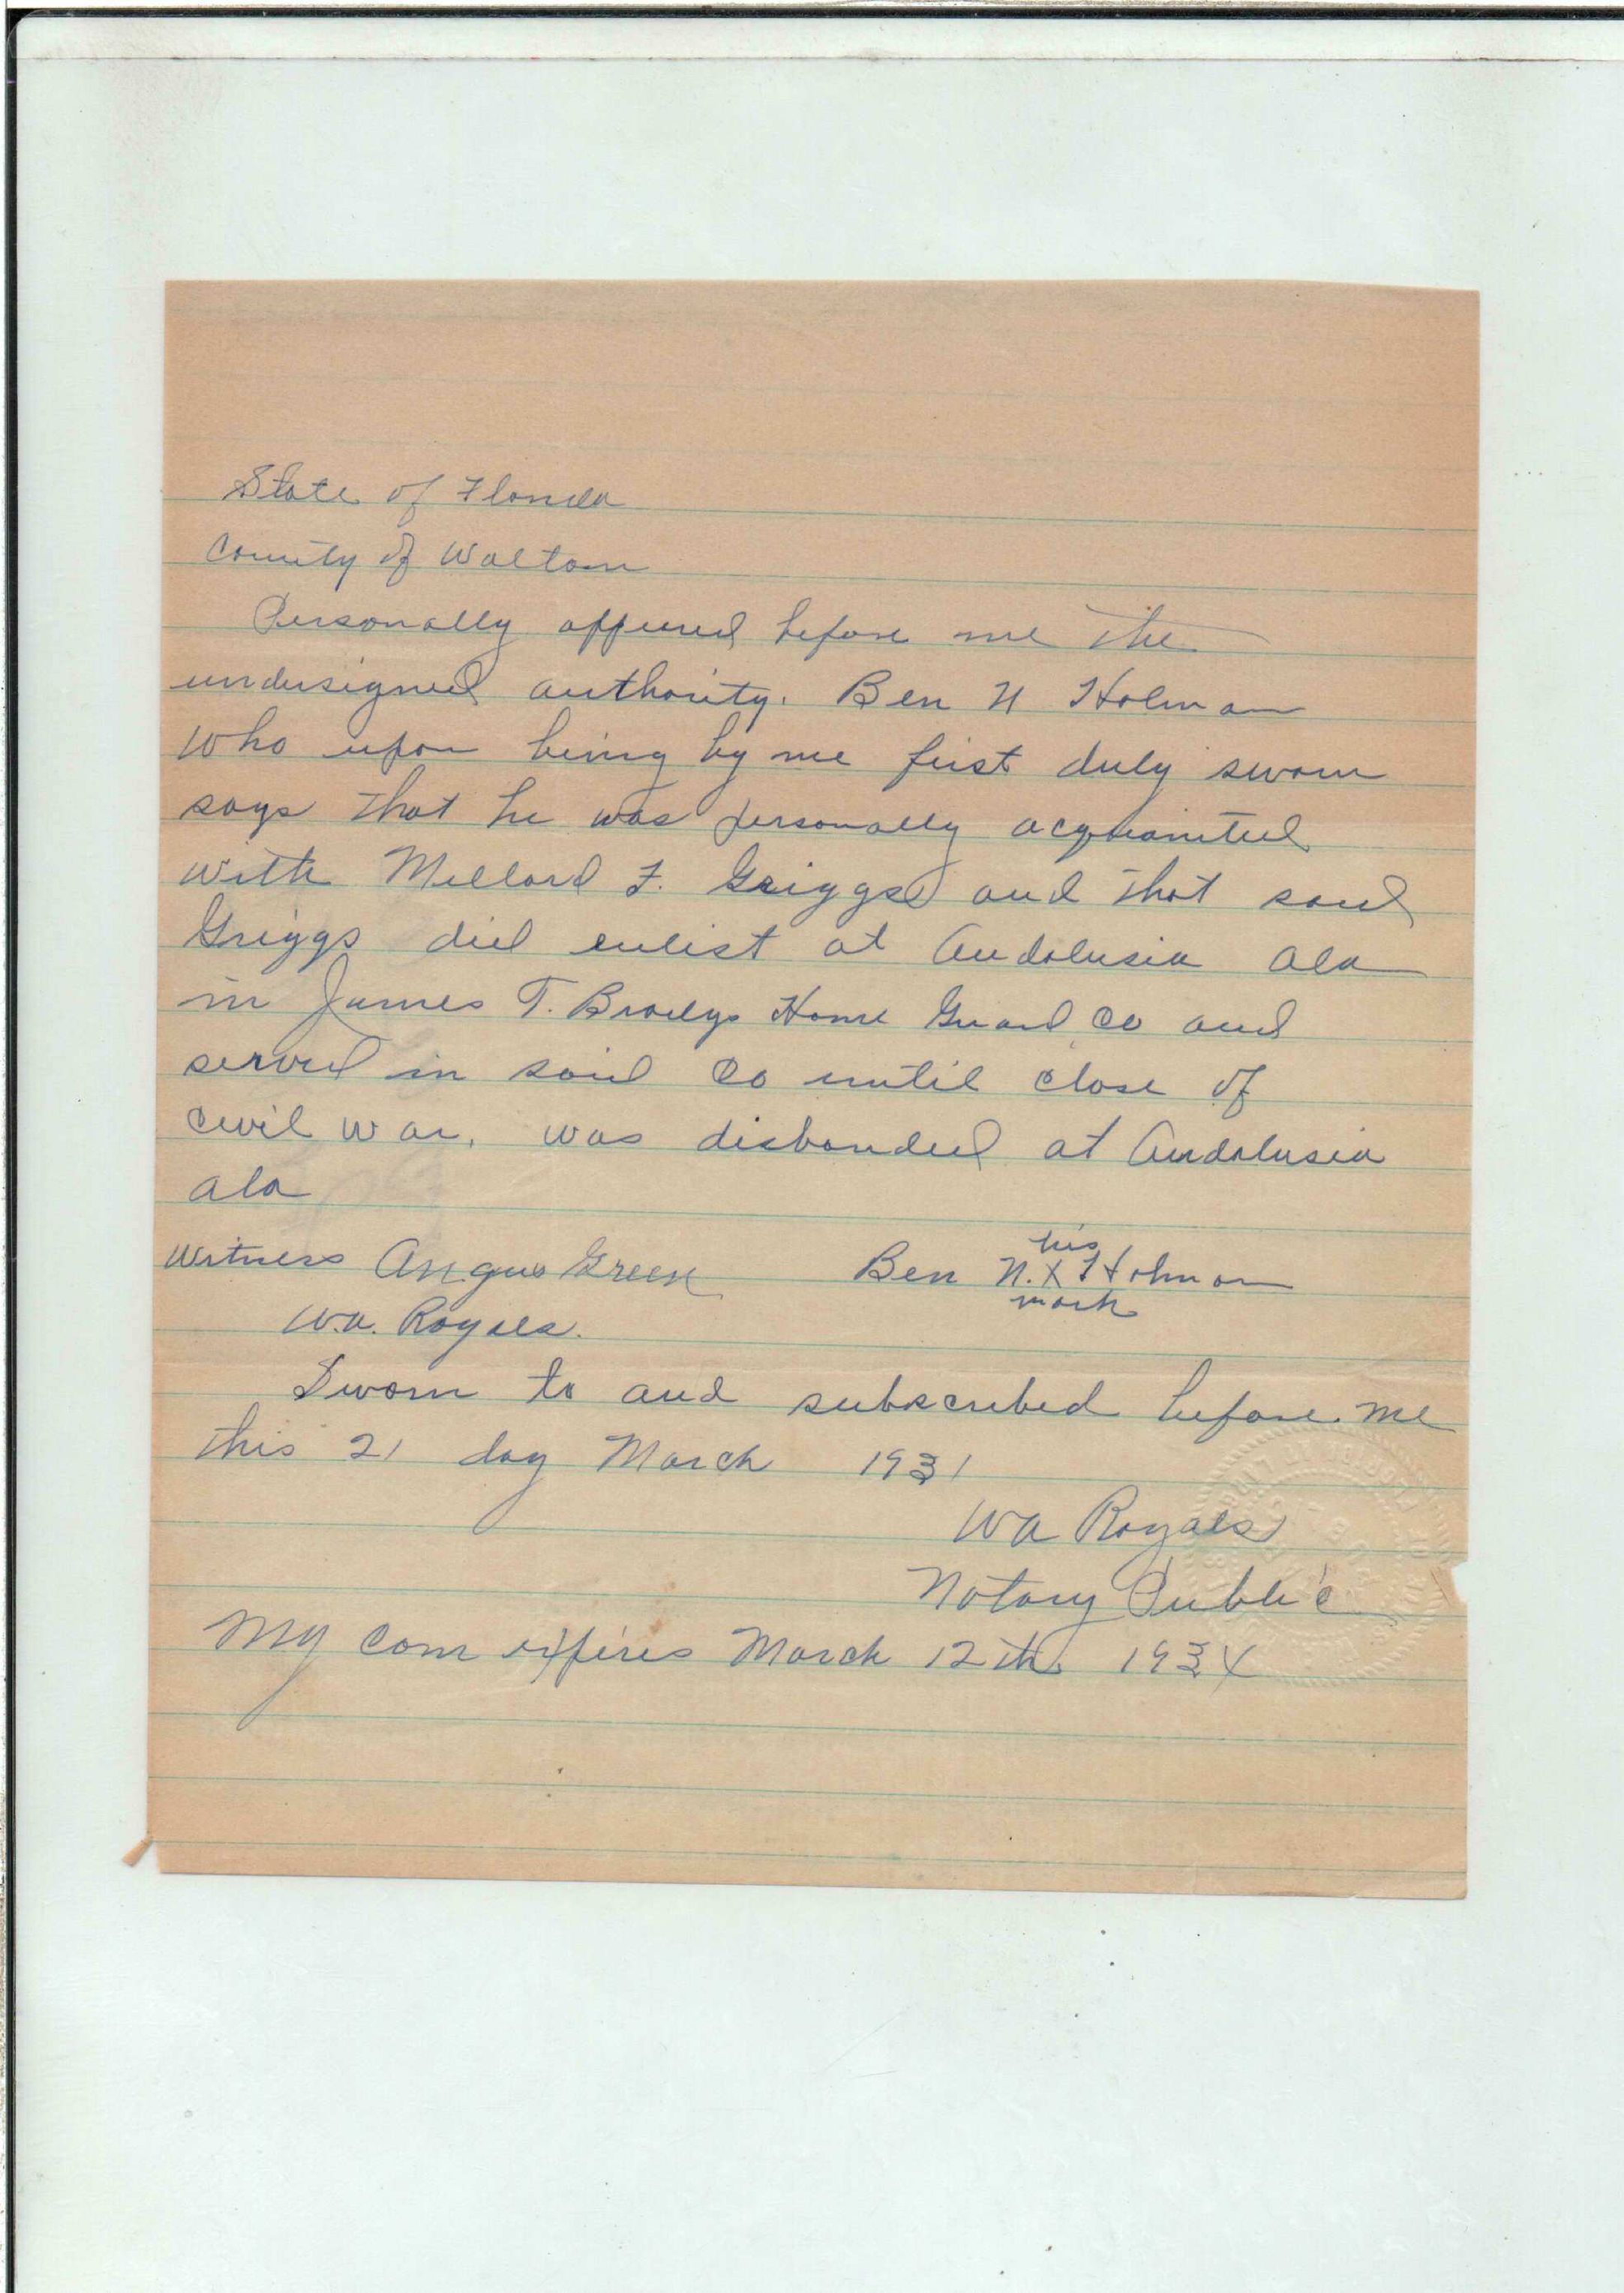 State of Florida
County of Walton
Personally appered before me the
undersigned authority. Ben N Holman
who upon being by me first duly sworn
says that he was personally acquainted
with Millard F. Griggs and that said
Griggs did enlist at Andalusia Ala
in James T. Bradys Home Guard Co and
served in said Co until close of
Civil War, was disbanded at Andalusia
Ala
Witness Angus Green Ben N. his X mark Holman
W.A. Royals.
Sworn to and subscribed before me
this 21 day March 1931
WA Royals
Notary Public
My com expires March 12th 1934